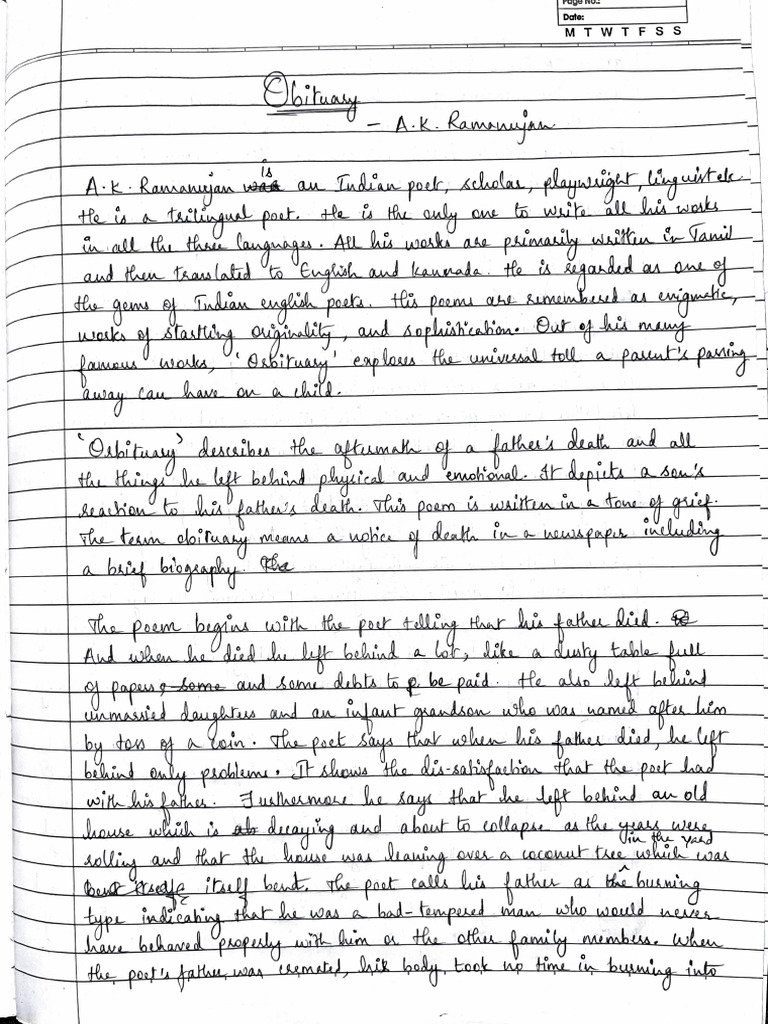 Page No.:
Date:
M T W T F S S
Obituary
- A.K. Ramanujan
is
A.K. Ramanujan was an Indian poet, scholar, playwright, linguist etc.
He is a trilingual poet. He is the only one to write all his works
in all the three languages. All his works are primarily written in Tamil
and then translated to English and Kannada. He is regarded as one of
the gems of Indian english poets. His poems are remembered as enigmatic,
works of startling originality, and sophistication. Out of his many
famous works, 'Orbituary' explores the universal toll a parent's passing
away can have on a child.
'Orbituary' describes the aftermath of a father's death and all
the things he left behind physical and emotional. It depicts a son's
reaction to his father's death. This poem is written in a tone of grief.
The term obituary means a notice of death in a newspaper including
a brief biography. The
The poem begins with the poet telling that his father died.
And when he died he left behind a lot, like a dusty table full
of papers, some and some debts to be paid. He also left behind
unmarried daughters and an infant grandson who was named after him
by toss of a coin. The poet says that when his father died, he left
behind only problems. It shows the dis-satisfaction that the poet had
with his father. Furthermore he says that he left behind an old
house which is decaying and about to collapse as the years were
in the yard
rolling and that the house was leaning over a coconut tree which was
bent itself itself bent. The poet calls his father as the burning
type indicating that he was a bad-tempered man who would never
have behaved properly with him or the other family members. When
the poet's father was cremated, his body took no time in burning into